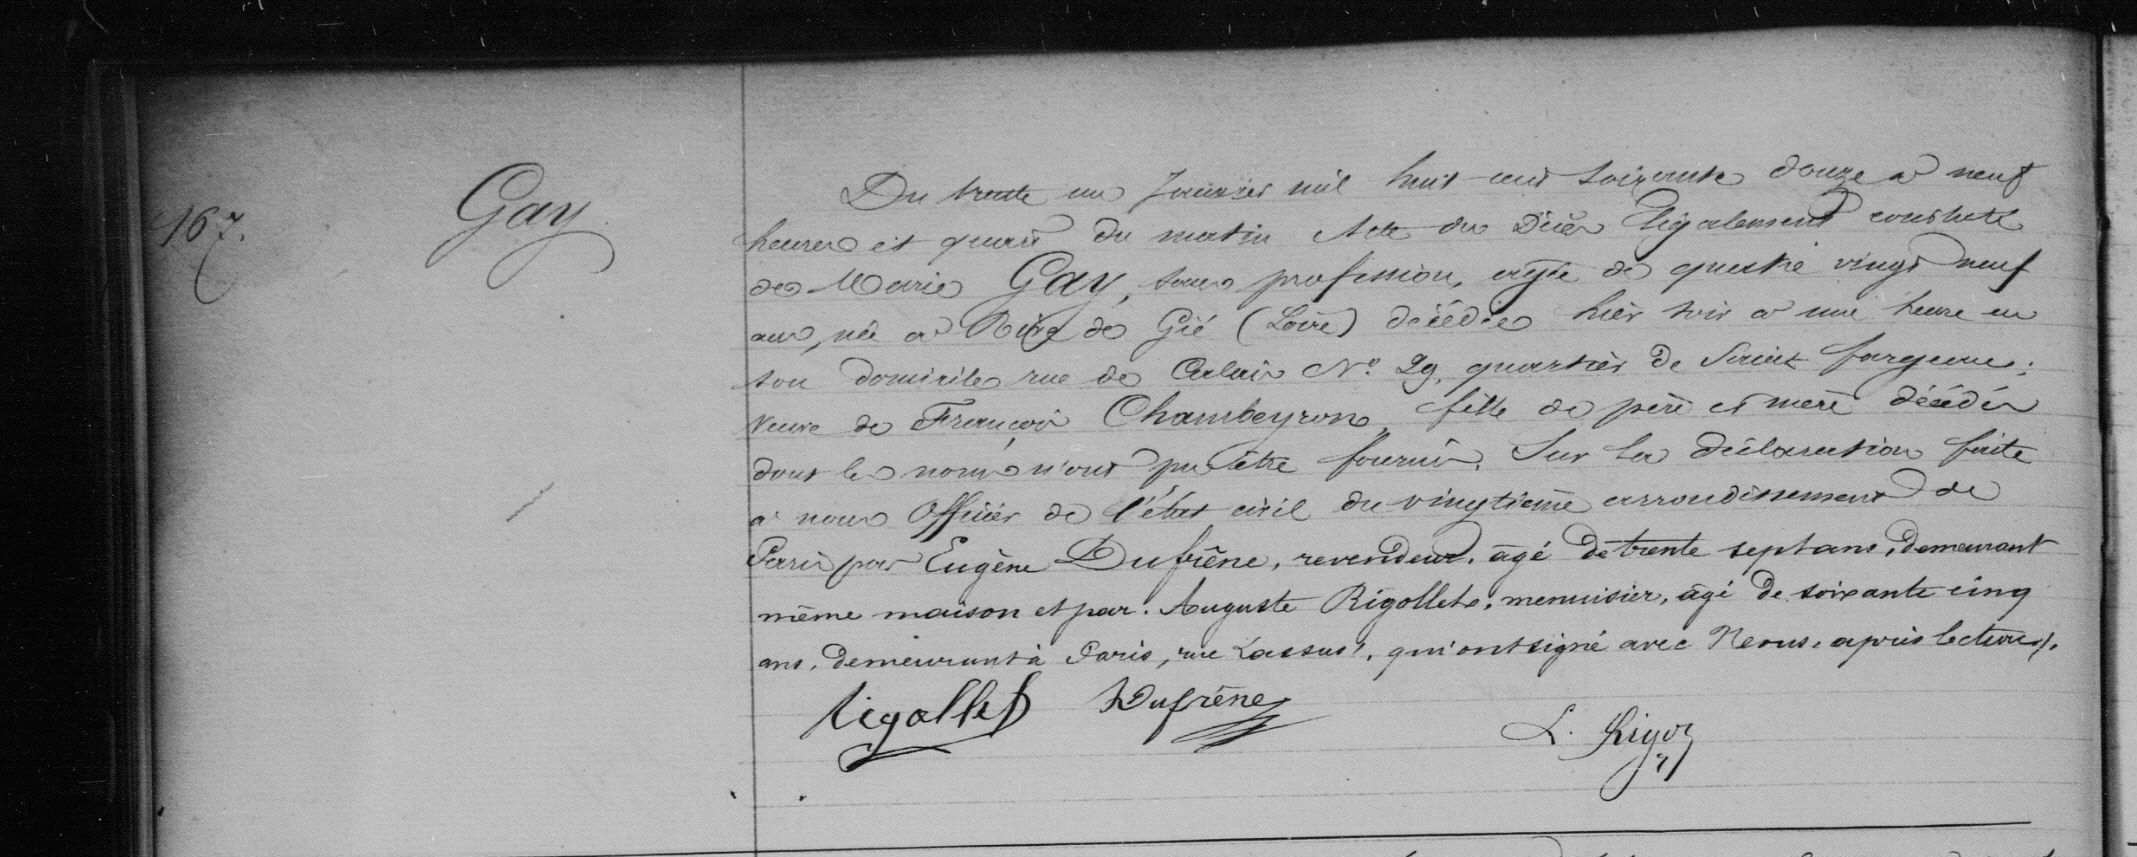 167.
Gay
Du trente un Janvier mil huit cent soixante douze à neuf
heures et quart du matin Acte de Décès légalement constaté
de Marie Gay, sans profession, agée de quatre vingt neuf
ans, née à Rive de Gié (Loire) décédée hier soir à une heure en
son domicile rue de Calais N° 29, quartier de Saint fargeau;
veuve de François Chambeyron, fille de père et mère décédés
dont les noms n'ont pu être fournis. Sur la déclaration faite
à nous Officier de l'état civil du vingtième arrondissement de
Paris par Eugène Dufrêne, revendeur, âgé de trente sept ans, demeurant
même maison et par Auguste Rigollet, menuisier, âgé de soixante cinq
ans, demeurant à Paris, rue Lassus, qui ont signé avec Nous, après lecture.
Rigollet Dufrêne
L.